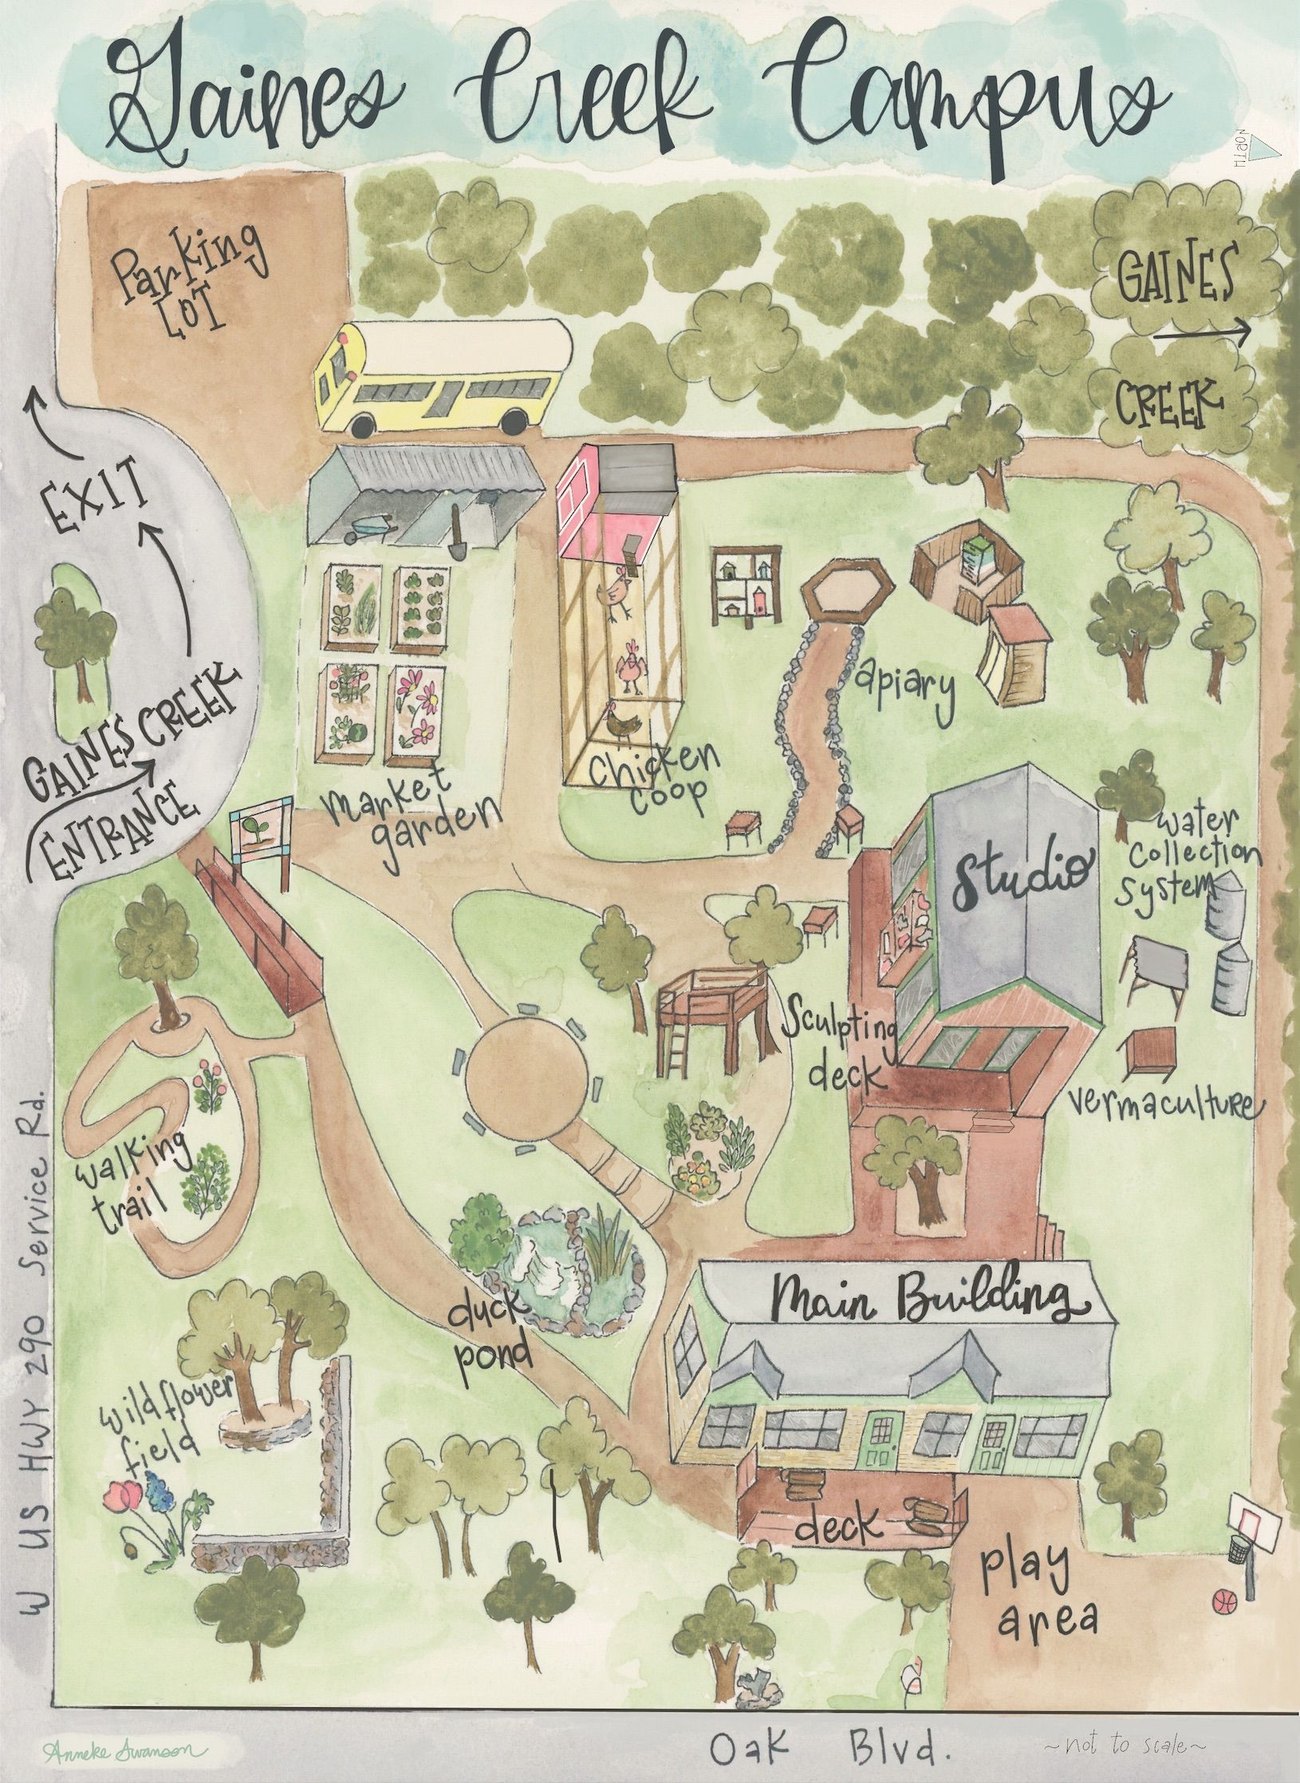 Gaines Creek Campus
NORTH
Parking
LOT
GAINES
CREEK
EXIT
GAINES CREEK
ENTRANCE
market
garden
Chicken
coop
apiary
Studio
water
Collection
System
Sculpting
deck
vermaculture
walking
trail
duck
pond
Main Building
wildflower
field
deck
play
area
W US HWY 290 Service Rd.
Oak Blvd.
~not to scale~
Anneke Swanson